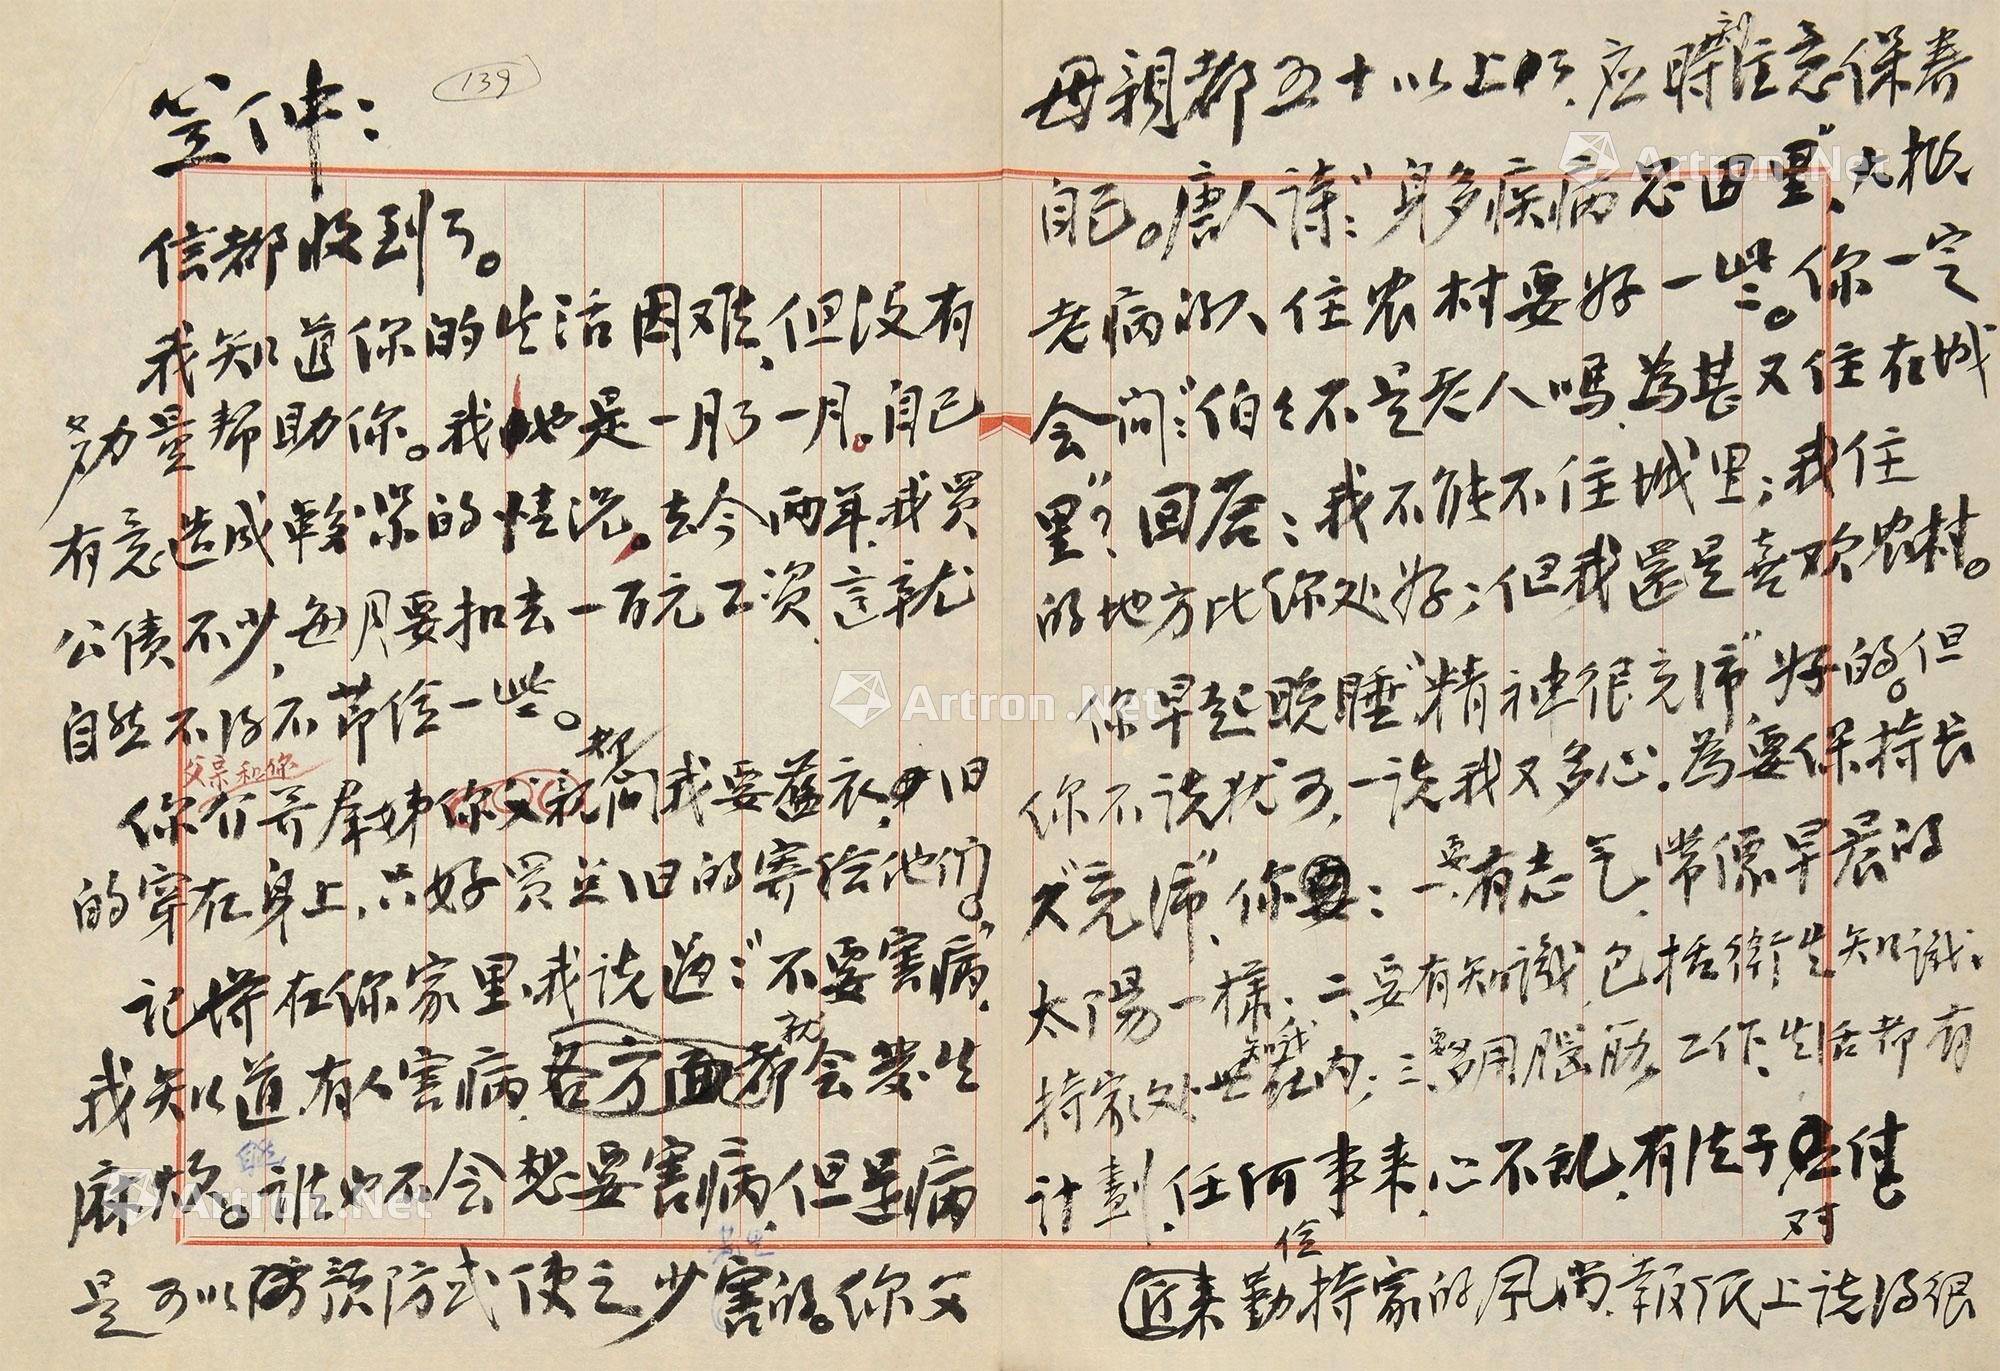 139
笠仲：
信都收到了。
我知道你的生活困难，但没有
力量帮助你。我也是一月了一月。自己
有意造成艱深的情况。去今两年，我買
公债不少，每月要扣去一百元工资，這就
自然不得不节俭一些。
父亲和你
都
你介弄犀姊你父親問我要舊衣，旧
的穿在身上，只好買些旧的寄给他们。
记得在你家里，我说過：“不要害病，
就
我知道，有人害病，各方面都会發生
麻烦。谁也不会想要害病，但是病
是可以预防或使之少害的。你父
母親都五十以上了，应時刻注意保养
自己。唐人诗：“身多疾病思田里”，大抵
老病的人住农村要好一些。你一定
会问：“伯伯不是老人嗎，為甚又住在城
里”？回居：我不能不住城里；我住
的地方比你处好；但我還是喜欢农村。
你早起晚睡，“精神很充沛”好的。但
你不说犹可，一说我又多心。為要保持长
久“充沛”，你要：一、要有志气，常像早晨的
太陽一樣；二、要有知識，包括衛生知識、
知識
持家处世在内；三、要多用腦筋，工作、生活都有
计劃，任何事来，心不乱，有法于应付
对
俭
近来勤持家的风尚，報纸上说得很
Artron.Net
Artron.Net
Artron.Net